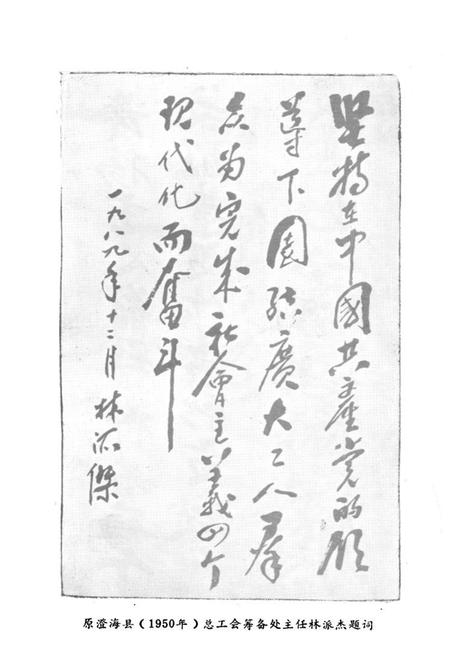 坚持在中國共產党的領
導下團结廣大工人羣
众为完成社會主义四个
现代化而奮斗
一九八九年十二月 林派傑
原澄海县（1950年）总工会筹备处主任林派杰题词